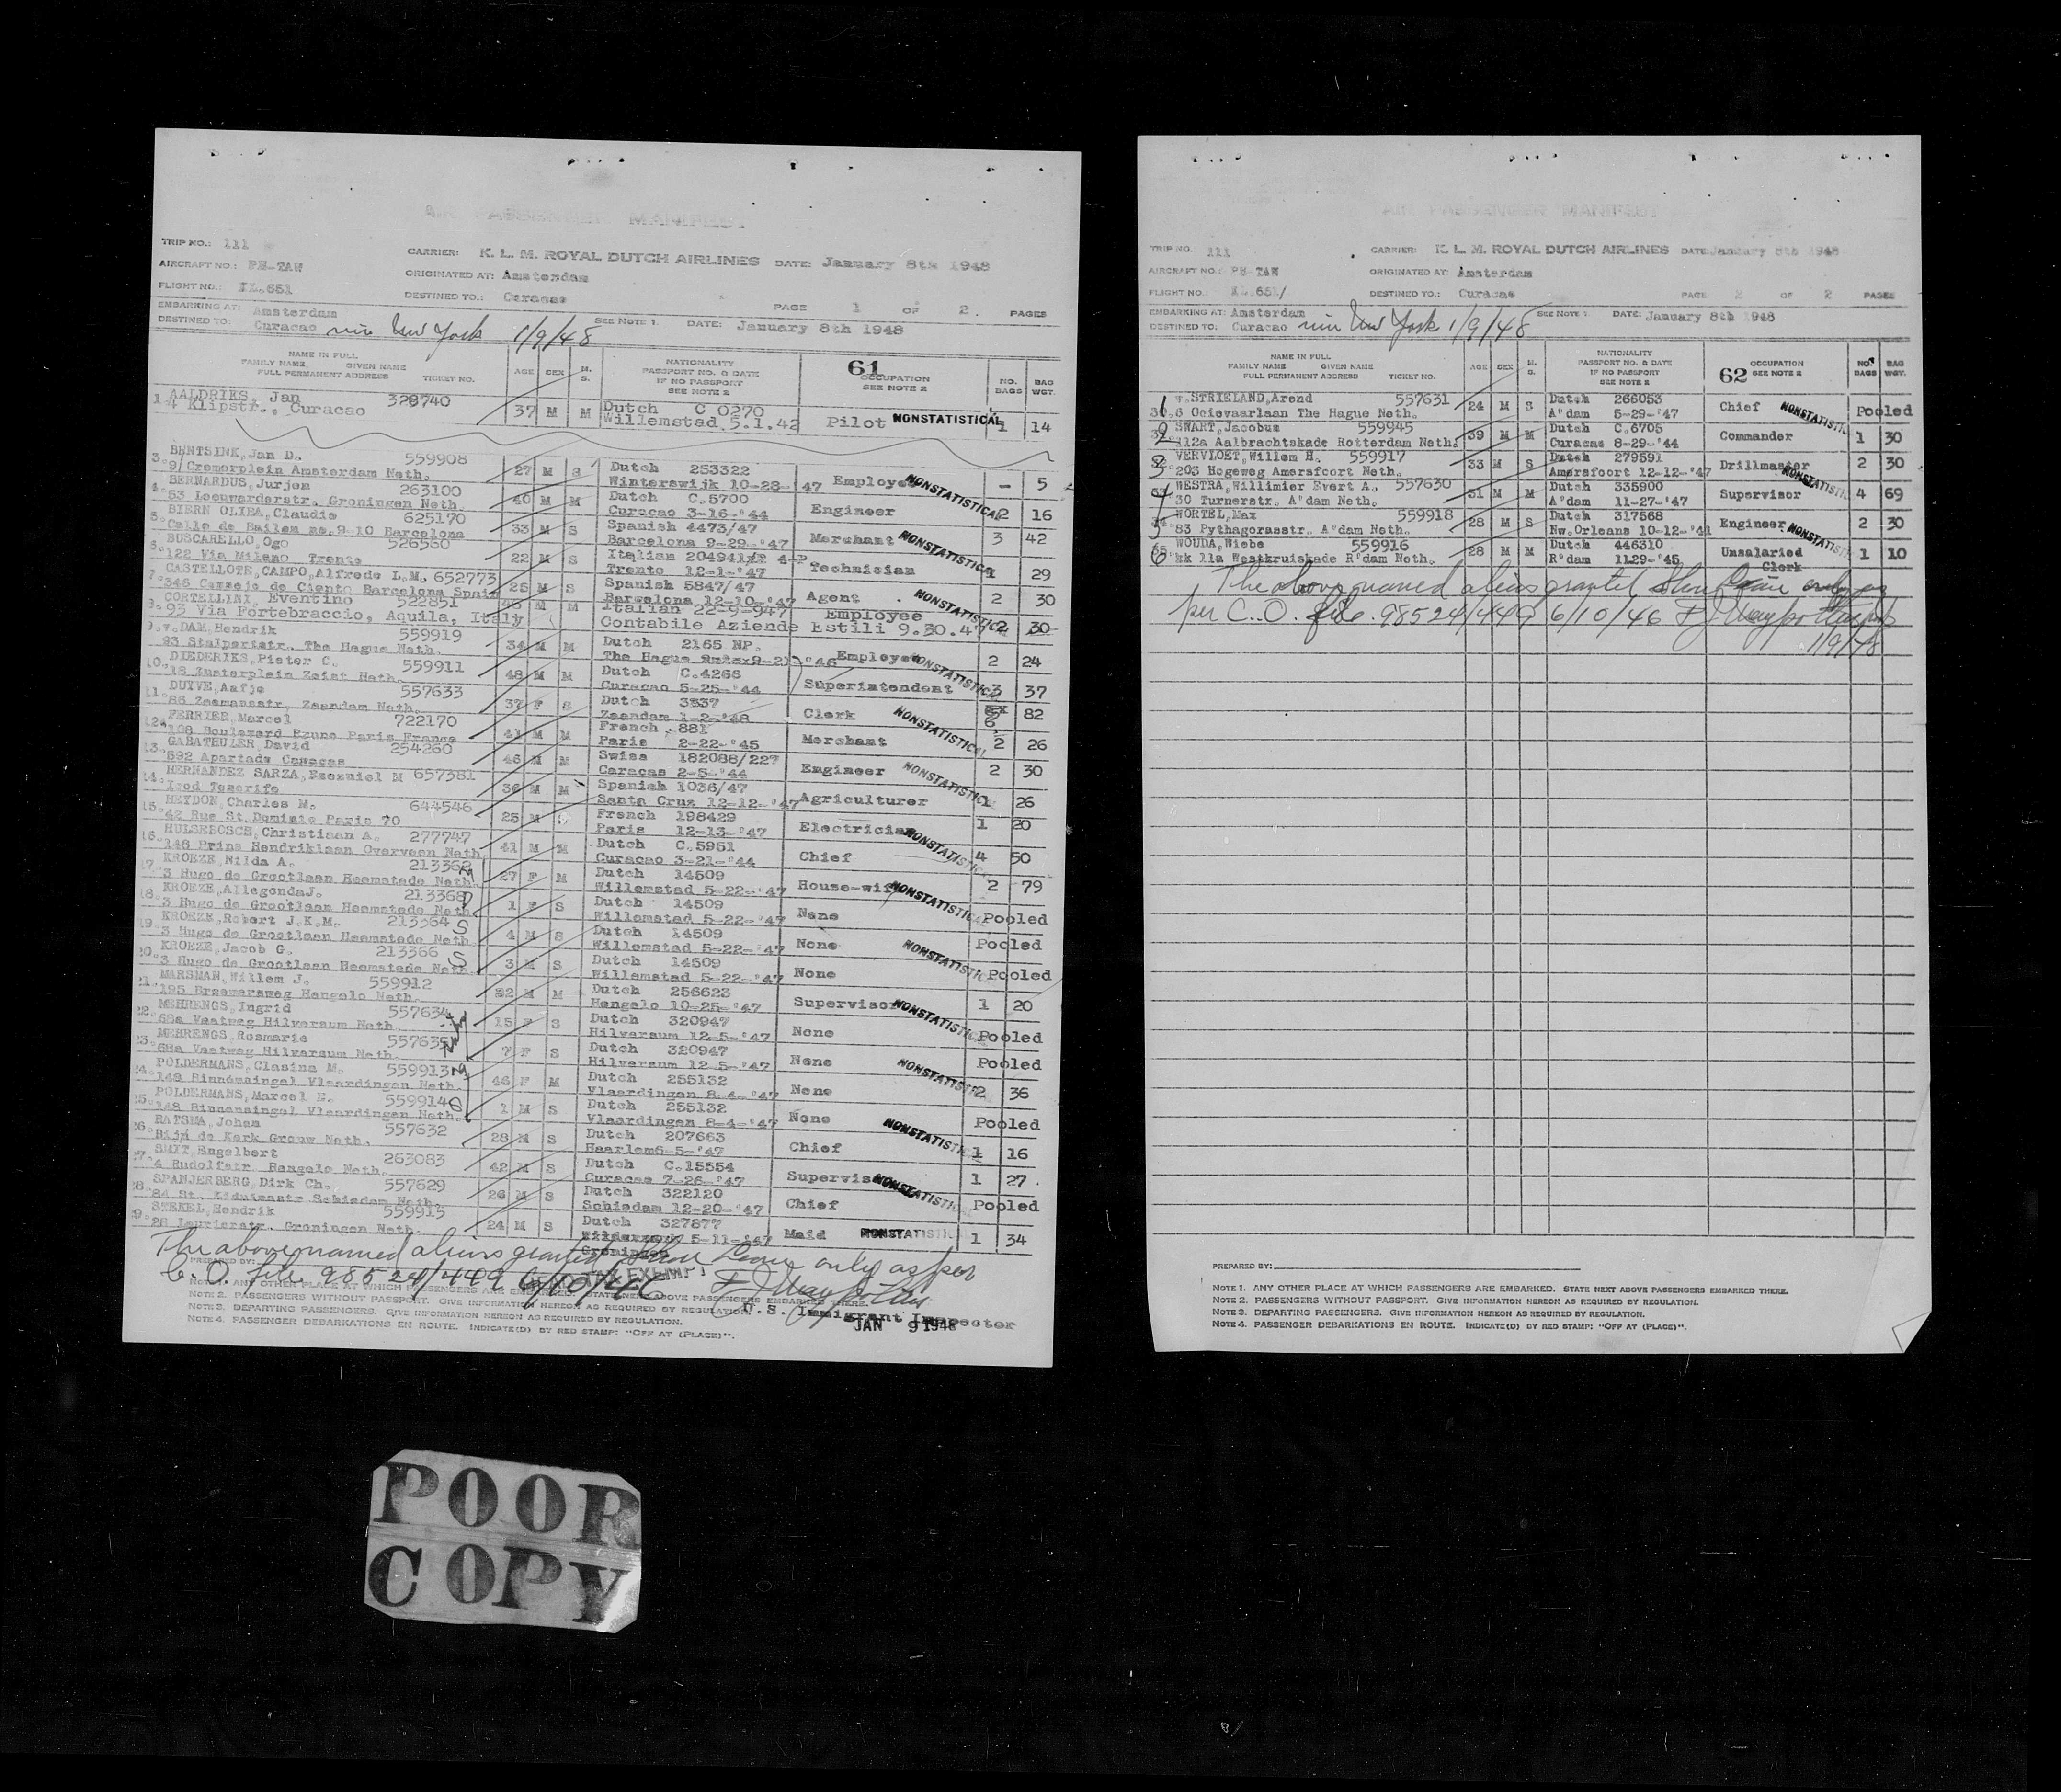 TRIP NO.: 111
CARRIER: K. L. M. ROYAL DUTCH AIRLINES DATE: January 8th 1948
AIRCRAFT NO.: PH-TAW
ORIGINATED AT: Amsterdam
FLIGHT NO.: KL.651
DESTINED TO.: Curacao
PAGE 1 OF 2. PAGES
EMBARKING AT: Amsterdam
DESTINED TO: Curacao via New York 1/9/48 SEE NOTE 1. DATE: January 8th 1948
NAME IN FULL
FAMILY NAME GIVEN NAME
FULL PERMANENT ADDRESS TICKET NO.
AGE SEX M. S.
NATIONALITY
PASSPORT NO. & DATE
IF NO PASSPORT
SEE NOTE 2
61
OCCUPATION
SEE NOTE 2
NO. BAGS
BAG WGT.
AALDRIES, Jan 328740
14 Klipstr., Curacao 37 M M Dutch C 0270
Willemstad 5.1.42 Pilot NONSTATISTICAL 1 14
BENTSINK, Jan D. 559908
3. 9 Cremerplein Amsterdam Neth. 27 M S Dutch 253322
Winterswijk 10-28-'47 Employee NONSTATISTICAL - 5
BERNARDUS, Jurjen 263100
4. 53 Leeuwarderstr. Groningen Neth. 40 M M Dutch C.5700
Curacao 3-16-'44 Engineer 2 16
BIERN OLIBA, Claudio 625170
5. Calle de Bailen no. 9-10 Barcelona 33 M S Spanish 4473/47
Barcelona 9-29-'47 Merchant NONSTATISTICAL 3 42
BUSCARELLO, Ogo 526560
6. 122 Via Milano Trento 22 M S Italian 204941
Trento 12-1-'47 Technician 1 29
CASTELLOTE, CAMPO, Alfredo L.M. 652773
7. 346 Consejo de Ciento Barcelona Spain 25 M S Spanish 5847/47
Barcelona 12-10-'47 Agent NONSTATISTICAL 2 30
CORTELLINI, Eventino 522851
8. 93 Via Fortebraccio, Aquila, Italy M M Italian 22-9-947
Contabile Aziende Estili 9.30.47 Employee 2 30
9. v. DAM, Hendrik 559919
93 Stalpertstr. The Hague Neth. 34 M M Dutch 2165 NP.
The Hague '46 Employee NONSTATISTICAL 2 24
DIEDERIKS, Pieter C. 559911
10. 18 Zusterplein Zeist Neth. 48 M M Dutch C.4266
Curacao 5-25-'44 Superintendent 3 37
DUYVE, Aafje 557633
11. 86 Zeemansstr. Zaandam Neth. 37 F S Dutch 3537
Zaandam 1-2-'48 Clerk NONSTATISTICAL 6 82
FERRIER, Marcel 722170
12. 108 Boulevard Brune Paris France 41 M M French 881
Paris 2-22-'45 Merchant 2 26
GABATHULER, David 254260
13. 692 Apartado Caracas 46 M M Swiss 182088/227
Caracas 2-5-'44 Engineer NONSTATISTICAL 2 30
HERNANDEZ SARZA, Ezequiel M 657381
14. Icod Tenerife 36 M M Spanish 1036/47
Santa Cruz 12-12-'47 Agriculturer 1 26
HEYDON, Charles M. 644546
15. 42 Rue St. Dominic Paris 70 25 M S French 198429
Paris 12-13-'47 Electrician NONSTATISTICAL 1 20
HULSEBOSCH, Christiaan A. 277747
16. 148 Prins Hendriklaan Overveen Neth. 41 M M Dutch C.5951
Curacao 3-21-'44 Chief 4 50
KROEZE, Nilda A. 213362
17. 3 Hugo de Grootlaan Heemstede Neth. 27 F M Dutch 14509
Willemstad 5-22-'47 House-wife NONSTATISTICAL 2 79
KROEZE, Allegonda J. 213368
18. 3 Hugo de Grootlaan Heemstede Neth. 1 F S Dutch 14509
Willemstad 5-22-'47 None Pooled
KROEZE, Robert J.K.M. 213364
19. 3 Hugo de Grootlaan Heemstede Neth. 4 M S Dutch 14509
Willemstad 5-22-'47 None NONSTATISTICAL Pooled
KROEZE, Jacob G. 213366
20. 3 Hugo de Grootlaan Heemstede Neth. 3 M S Dutch 14509
Willemstad 5-22-'47 None Pooled
MARSMAN, Willem J. 559912
21. 195 Bremersweg Hengelo Neth. 32 M M Dutch 256623
Hengelo 10-25-'47 Supervisor NONSTATISTICAL 1 20
MEHRENGS, Ingrid 557634
22. 68a Vaatweg Hilversum Neth. 15 F S Dutch 320947
Hilversum 12.5-'47 None Pooled
MEHRENGS, Rosmarie 557635
23. 68a Vaatweg Hilversum Neth. 7 F S Dutch 320947
Hilversum 12.5-'47 None NONSTATISTICAL Pooled
POLDERMANS, Clasina M. 559913
24. 148 Binnensingel Vlaardingen Neth. 46 F M Dutch 255132
Vlaardingen 8-4-'47 None 2 36
POLDERMANS, Marcel E. 559914
25. 148 Binnensingel Vlaardingen Neth. 1 M S Dutch 255132
Vlaardingen 8-4-'47 None NONSTATISTICAL Pooled
RATSMA, Johan 557632
26. Rijn de Kerk Grouw Neth. 28 M S Dutch 207663
Haarlem 6-5-'47 Chief 1 16
SMIT, Engelbert 263083
27. 4 Rudolfstr. Hengelo Neth. 42 M S Dutch C.15554
Curacao 7-26-'47 Supervisor NONSTATISTICAL 1 27
SPANJERBERG, Dirk Ch. 557629
28. 84 St. Liduinastr Schiedam Neth. 26 M S Dutch 322120
Schiedam 12-20-'47 Chief Pooled
STEKEL, Hendrik 559915
29. 28 Laurierstr. Groningen Neth. 24 M S Dutch 327877
5-11-'47 Maid NONSTATISTICAL 1 34
Groningen
The above named aliens granted Shore Leave only as per
C.O. file 98524/449 6/10/46
PREPARED BY:
NOTE 1. ANY OTHER PLACE AT WHICH PASSENGERS ARE EMBARKED. STATE NEXT ABOVE PASSENGERS EMBARKED THERE.
NOTE 2. PASSENGERS WITHOUT PASSPORT. GIVE INFORMATION HEREON AS REQUIRED BY REGULATION.
NOTE 3. DEPARTING PASSENGERS. GIVE INFORMATION HEREON AS REQUIRED BY REGULATION.
NOTE 4. PASSENGER DEBARKATIONS EN ROUTE. INDICATE(D) BY RED STAMP: "OFF AT (PLACE)".
U.S. Immigrant Inspector
JAN 9 1948
TRIP NO. 111
CARRIER: K. L. M. ROYAL DUTCH AIRLINES DATE: January 8th 1948
AIRCRAFT NO.: PH-TAW
ORIGINATED AT: Amsterdam
FLIGHT NO.: KL.651/
DESTINED TO.: Curacao
PAGE 2 OF 2 PAGES
EMBARKING AT: Amsterdam
DESTINED TO: Curacao via New York 1/9/48 SEE NOTE 1. DATE: January 8th 1948
NAME IN FULL
FAMILY NAME GIVEN NAME
FULL PERMANENT ADDRESS TICKET NO.
AGE SEX M. S.
NATIONALITY
PASSPORT NO. & DATE
IF NO PASSPORT
SEE NOTE 2
62
OCCUPATION
SEE NOTE 2
NO. BAGS
BAG WGT.
1 v. STRIELAND, Arend 557631
6 Ooievaarlaan The Hague Neth. 24 M S Dutch 266053
A'dam 5-29-'47 Chief NONSTATISTICAL Pooled
2 SWART, Jacobus 559945
312a Aalbrachtskade Rotterdam Neth. 39 M M Dutch C.6705
Curacao 8-29-'44 Commander 1 30
3 VERVLOET, Willem H. 559917
203 Hogeweg Amersfoort Neth. 33 M S Dutch 279591
Amersfoort 12-12-'47 Drillmaster NONSTATISTICAL 2 30
4 WESTRA, Willimier Evert A. 557630
30 Turnerstr. A'dam Neth. 31 M M Dutch 335900
A'dam 11-27-'47 Supervisor 4 69
5 WORTEL, Max 559918
83 Pythagorasstr. A'dam Neth. 28 M S Dutch 317568
Nw. Orleans 10-12-'41 Engineer NONSTATISTICAL 2 30
6 WOUDA, Wiebe 559916
kk 11a Westkruiskade R'dam Neth. 28 M M Dutch 446310
R'dam 1129-'45 Unsalaried Clerk 1 10
The above named aliens granted Shore Leave only as
per C.O. file 98524/449 6/10/46
1/9/48
PREPARED BY:
NOTE 1. ANY OTHER PLACE AT WHICH PASSENGERS ARE EMBARKED. STATE NEXT ABOVE PASSENGERS EMBARKED THERE.
NOTE 2. PASSENGERS WITHOUT PASSPORT. GIVE INFORMATION HEREON AS REQUIRED BY REGULATION.
NOTE 3. DEPARTING PASSENGERS. GIVE INFORMATION HEREON AS REQUIRED BY REGULATION.
NOTE 4. PASSENGER DEBARKATIONS EN ROUTE. INDICATE(D) BY RED STAMP: "OFF AT (PLACE)".
POOR
COPY